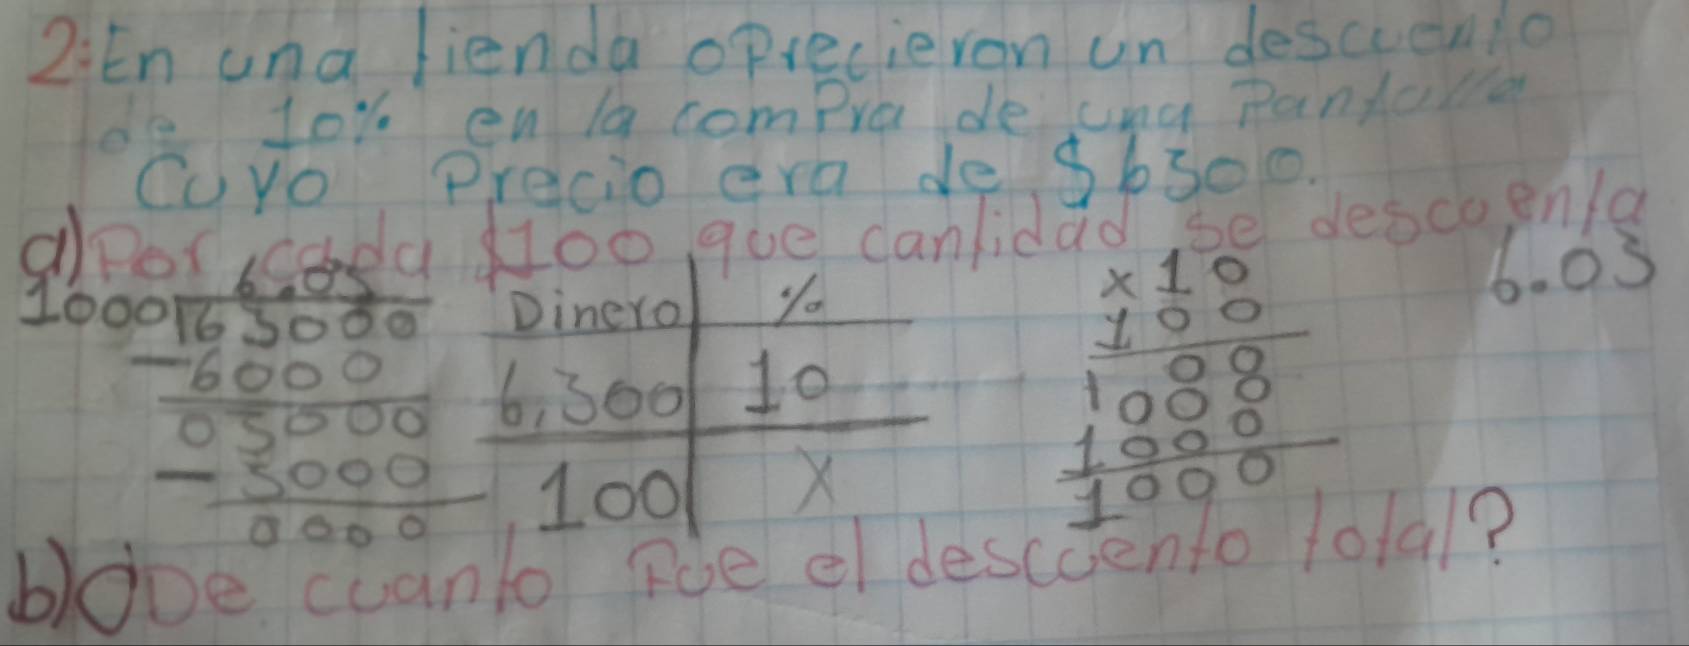 2: En una tienda oprecieron un descuento
de 10% en la compra de una Pantalla
Cuyo Precio era de $6300.
a) Por cada $100 que cantidad se descuenta
6.03
1000 63000
-6000
03000
-3000
0000
Dinero %
6,300 10
100 X
x10
100
00
1000
1000
1000
6.03
b) De cuanto Fue el descuento total?